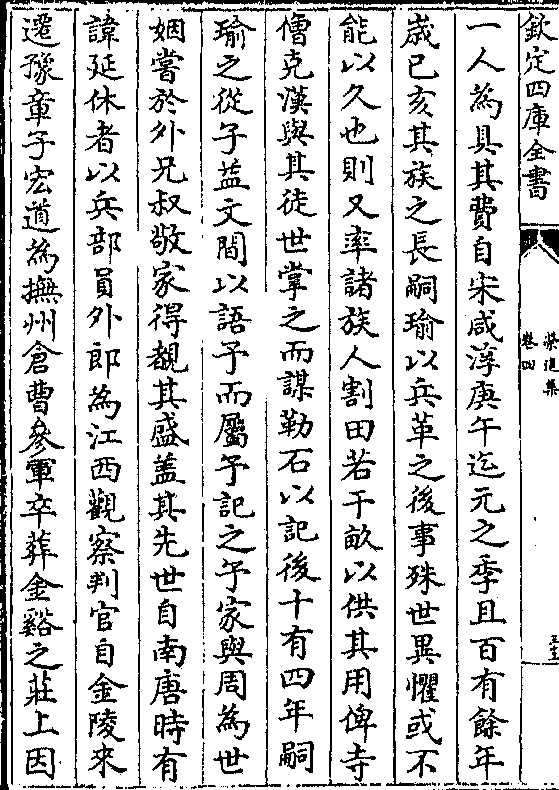 欽定四庫全書
卷四
一人為具其費自宋咸淳庚午迄元之季且百有餘年
歲已亥其族之長嗣瑜以兵革之後事殊世異懼或不
能以久也則又率諸族人割田若干畝以供其用俾寺
僧克漢與其徒世掌之而謀勒石以記後十有四年嗣
瑜之從子葢文間以語予而屬予記之予家與周為世
姻嘗於外兄叔敬家得覩其盛葢其先世自南唐時有
諱延休者以兵部員外郎為江西觀察判官自金陵來
遷豫章子宏道為撫州倉曹參軍卒葬金谿之莊上因